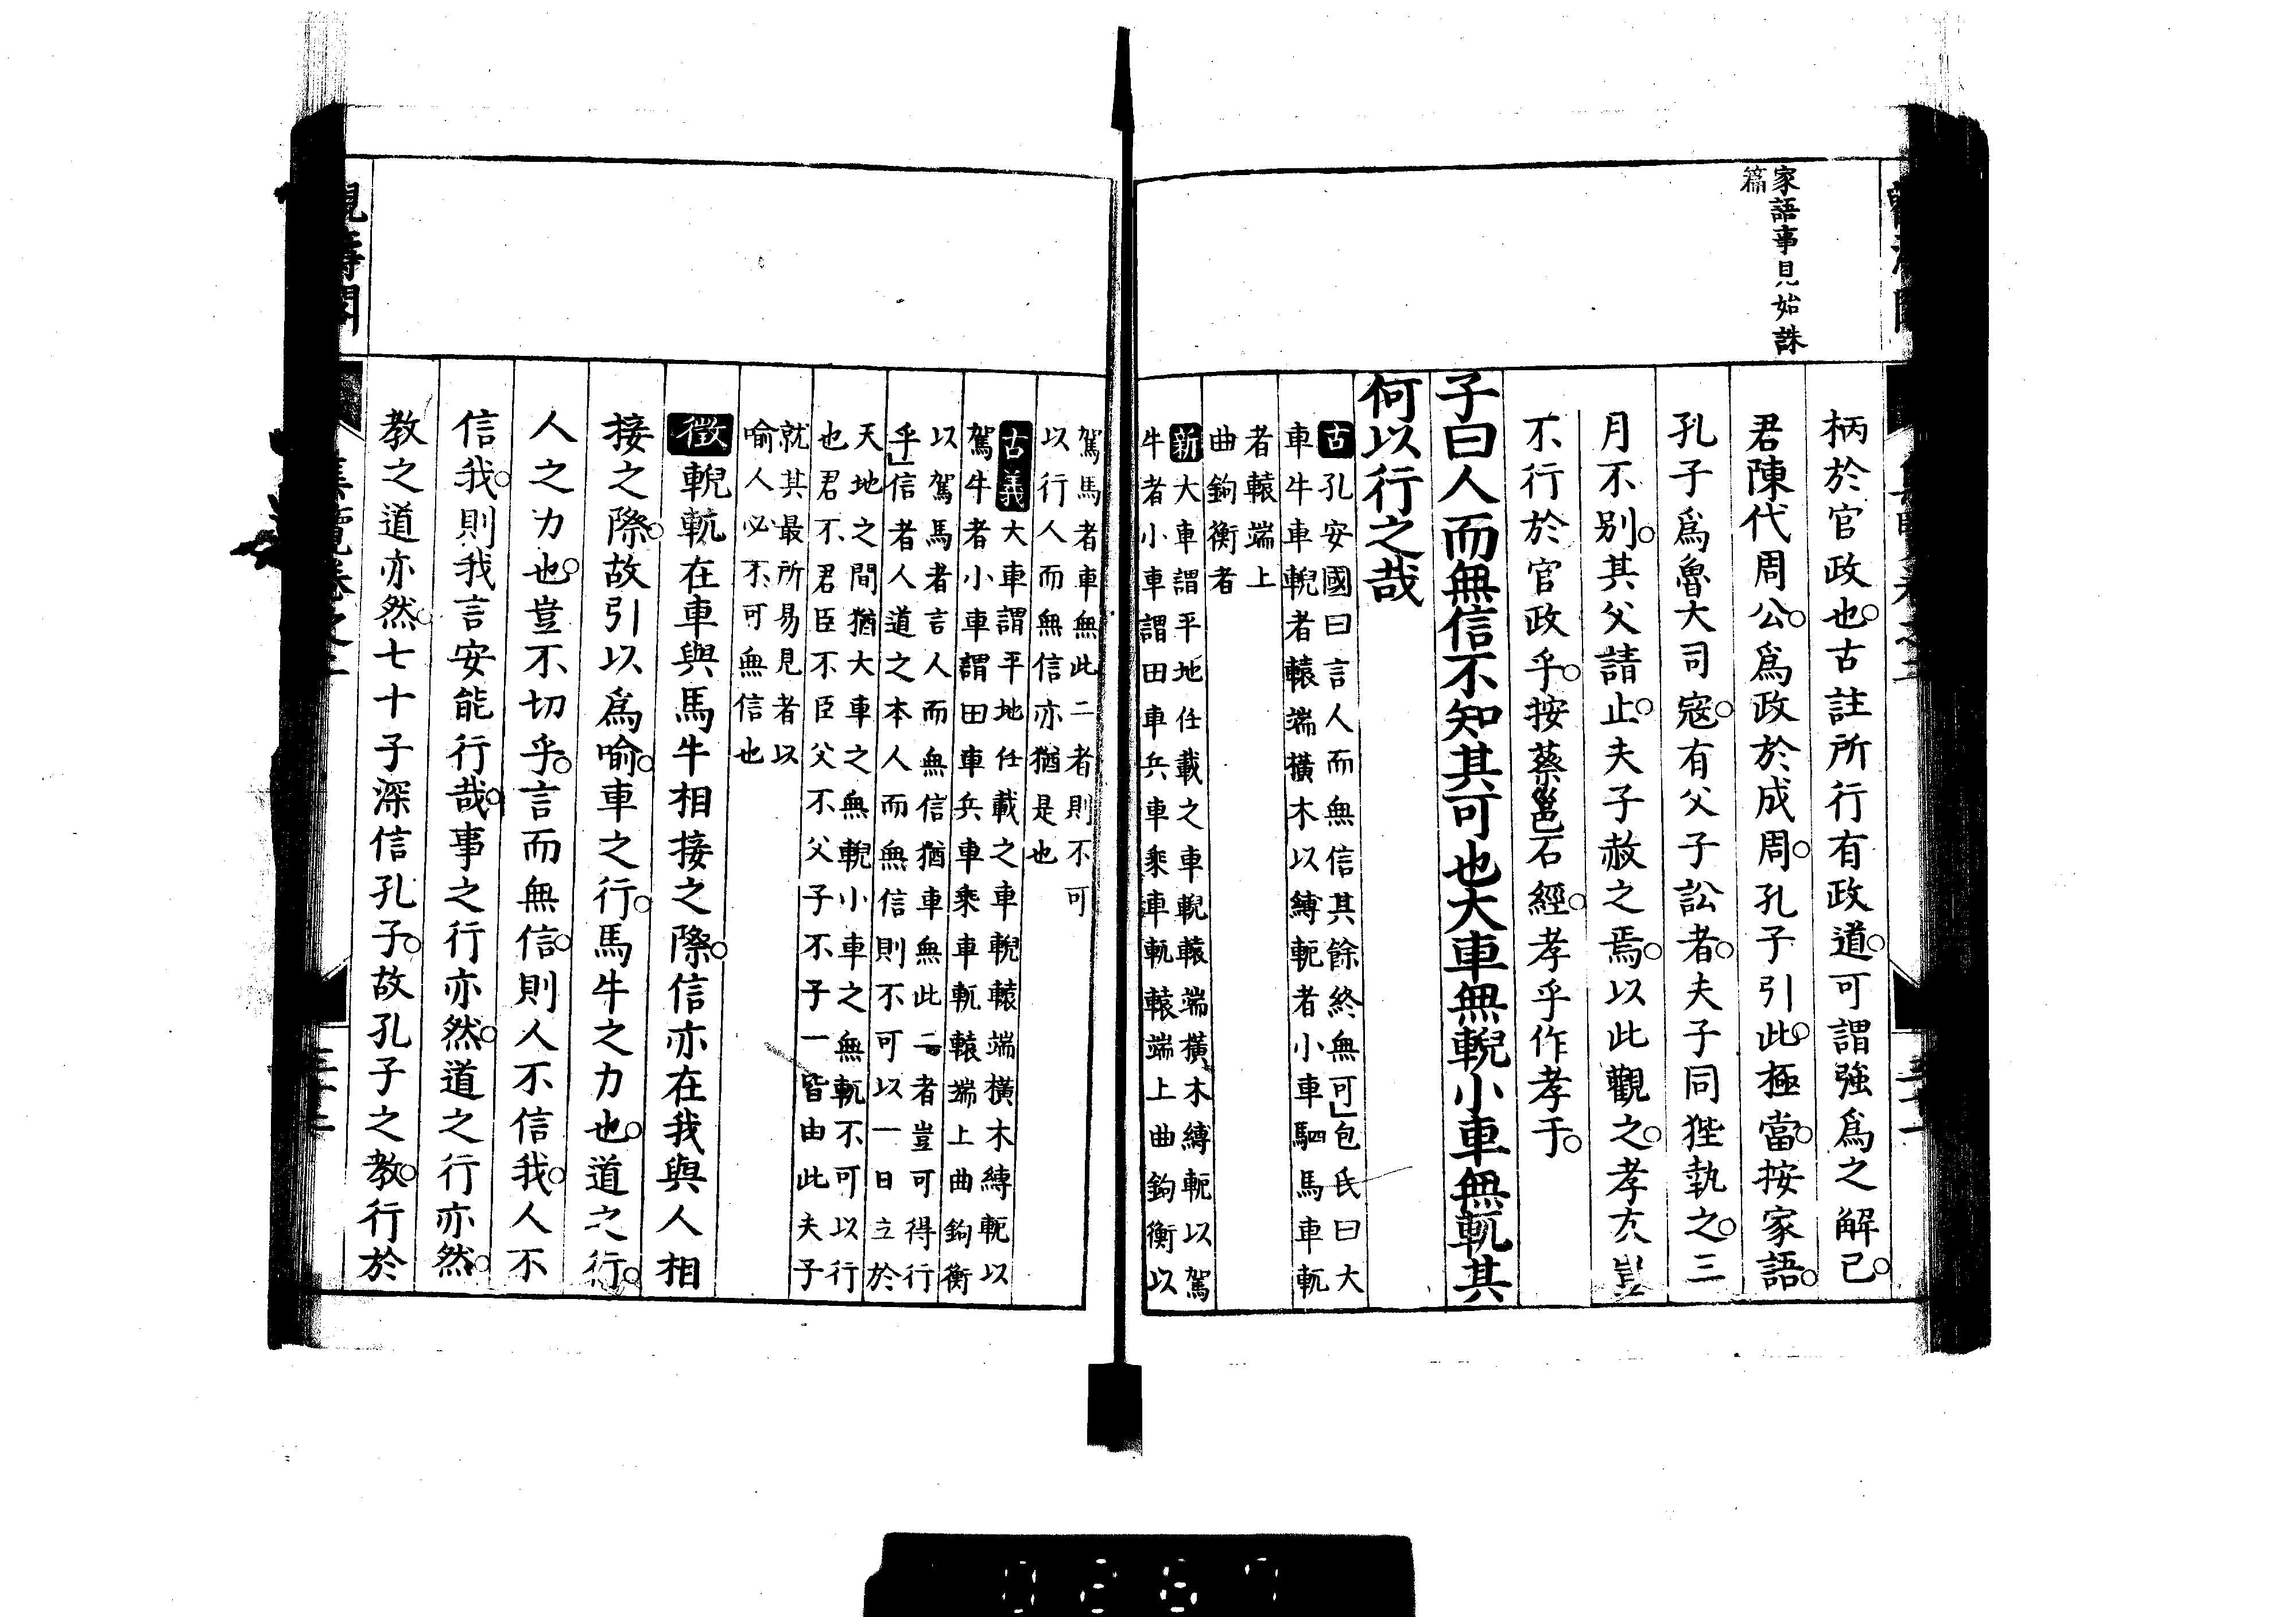 家語事見始誅
篇
柄於官政也古註所行有政道可謂強爲之解已
君陳代周公爲政於成周孔子引此極當按家語
孔子爲魯大司寇有父子訟者夫子同狴執之三
月不別其父請止夫子赦之焉以此觀之孝友豈
不行於官政乎按蔡邕石經孝乎作孝于
子曰人而無信不知其可也大車無輗小車無軏其
何以行之哉
古孔安國曰言人而無信其餘終無可包氏曰大
車牛車輗者轅端橫木以縛軛者小車駟馬車軏
者轅端上
曲鉤衡者
新大車謂平地任載之車輗轅端橫木縛軛以駕
牛者小車謂田車兵車乘車軏轅端上曲鉤衡以
駕馬者車無此二者則不可
以行人而無信亦猶是也
古義大車謂平地任載之車輗轅端橫木縛軛以
駕牛者小車謂田車兵車乘車軏轅端上曲鉤衡
以駕馬者言人而無信猶車無此二者豈可得行
乎信者人道之本人而無信則不可以一日立於
天地之間猶大車之無輗小車之無軏不可以行
也君不君臣不臣父不父子不子一皆由此夫子
就其最所易見者以
喻人必不可無信也
徵輗軏在車與馬牛相接之際信亦在我與人相
接之際故引以爲喻車之行馬牛之力也道之行
人之力也豈不切乎言而無信則人不信我人不
信我則我言安能行哉事之行亦然道之行亦然
教之道亦然七十子深信孔子故孔子之教行於